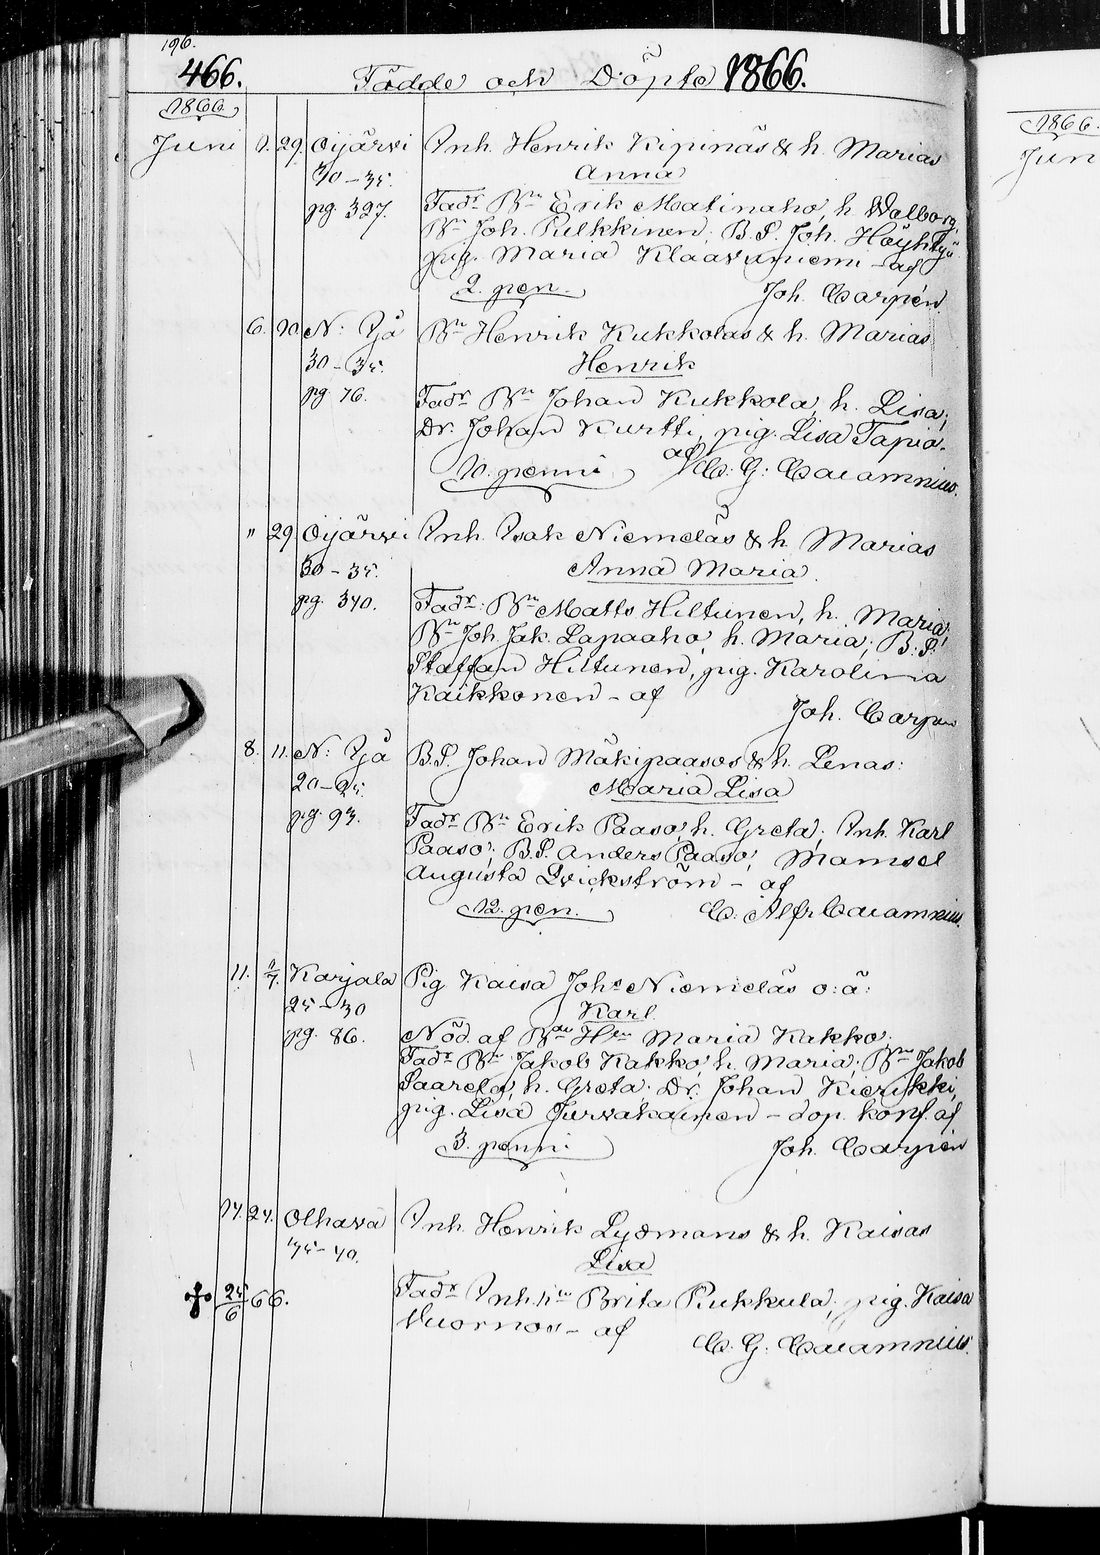 196.
466. Födde och Döpte 1866.
1866
Juni 1. 29. Oijärvi Inh. Henrik Kipinäs & h. Marias
30-35. Anna
pg. 327. Fadr Bn Erik Matinaho, h. Walborg,
Bn Joh. Pulkkinen; B.S. Joh. Höyhtyä
pig. Maria Klaavuniemi - af
2. pen. Joh. Carpén.
6. 10. N: Ijå Bn Henrik Kukkolas & h. Marias
30-35. Henrik
pg. 76. Fadr Bn Johan Kukkola, h. Lisa;
Dr. Johan Kurtti, pig. Lisa Tapio.
10. penni af C: G: Calamnius.
" 29. Oijärvi Inh. Isak Niemeläs & h. Marias
30-35. Anna Maria.
pg. 340. Fadr: Bn Matts Hiltunen, h. Maria;
Bn Joh. Jak. Lapaaho, h. Maria; B: S:
Staffan Hiltunen, pig. Karolina
Kaikkonen - af
Joh. Carpén
8. 11. N: Ijå B.S. Johan Mäkipaasos & h. Lenas:
20-25. Maria Lisa
pg. 93. Fadr Bn Erik Paaso, h. Greta; Inh. Karl
Paaso; B.S. Anders Paaso, Mamsel
Augusta Qvickström - af
12. pen. C. Alfr. Calamnius.
11. 1/7. Karjala Pig Kaisa Johs Niemeläs o: ä:
25-30 Karl.
pg. 86. Nöd. af Bde Hn Maria Kakko.
Fadr Bn Jakob Kakko, h. Maria; Bn Jakob
Paarela, h. Greta; Dr. Johan Kierikki,
pig. Lisa Jurvakainen - dop. konf. af
3. penni Joh. Carpén
14. 24. Olhava Inh. Henrik Lydmans & h. Kaisas
35-40. Lisa
25/6 66. Fadr Inh.hu Brita Pukkula, pig. Kaisa
Vuornos - af
C. G: Calamnius.
1866.
Jun